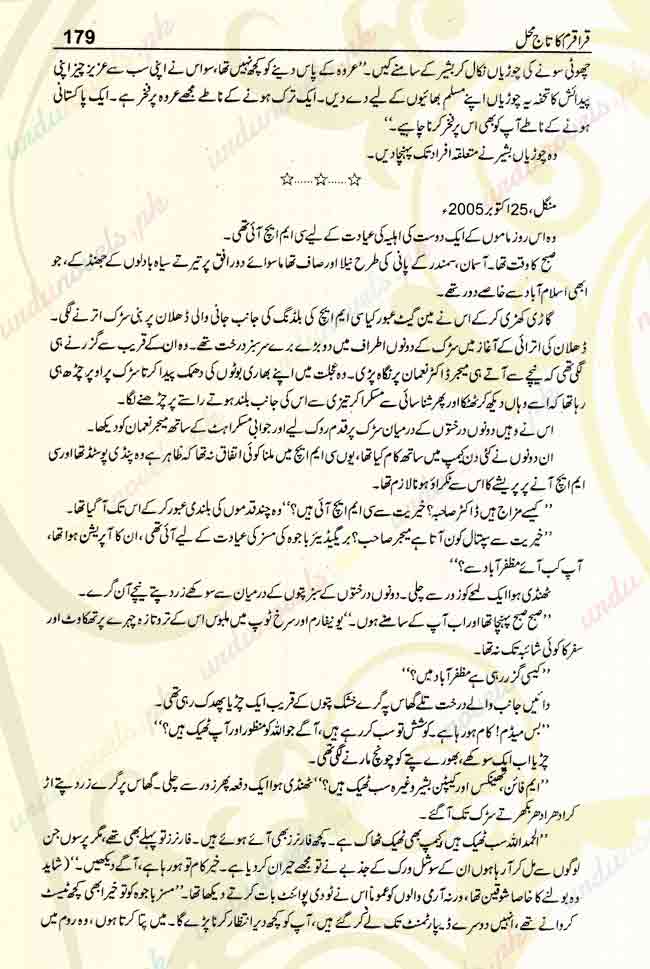 قراقرم کا تاج محل 179
چھوٹی سونے کی چوڑیاں نکال کر بشیر کے سامنے کیں۔ ”عروہ کے پاس دینے کو کچھ نہیں تھا، سو اس نے اپنی سب سے عزیز چیز اپنی
پیدائش کا تحفہ یہ چوڑیاں اپنے مسلم بھائیوں کے لیے دے دیں۔ ایک ترک ہونے کے ناطے مجھے عروہ پر فخر ہے۔ ایک پاکستانی
ہونے کے ناطے آپ کو بھی اس پر فخر کرنا چاہیے۔“
وہ چوڑیاں بشیر نے متعلقہ افراد تک پہنچا دیں۔
☆......☆......☆
منگل، 25 اکتوبر 2005ء
وہ اس روز ماموں کے ایک دوست کی اہلیہ کی عیادت کے لیے سی ایم ایچ آئی تھی۔
صبح کا وقت تھا۔ آسمان، سمندر کے پانی کی طرح نیلا اور صاف تھا ماسوائے دور افق پر تیرتے سیاہ بادلوں کے جھنڈ کے، جو
ابھی اسلام آباد سے خاصے دور تھے۔
گاڑی کھڑی کر کے اس نے مین گیٹ عبور کیا سی ایم ایچ کی بلڈنگ کی جانب جانی والی ڈھلان پر بنی سڑک اترنے لگی۔
ڈھلان کی اترائی کے آغاز میں سڑک کے دونوں اطراف میں دو بڑے ہرے سرسبز درخت تھے۔ وہ ان کے قریب سے گزرنے ہی
لگی تھی کہ نیچے سے آتے ہی میجر ڈاکٹر نعمان پر نگاہ پڑی۔ وہ عجلت میں اپنے بھاری بوٹوں کی دھمک پیدا کرتا سڑک پر اوپر چڑھ ہی
رہا تھا کہ اسے وہاں دیکھ کر ٹھٹکا اور پھر شناسائی سے مسکرا کر تیزی سے اس کی جانب بلند ہوتے راستے پر چڑھنے لگا۔
اس نے وہیں دونوں درختوں کے درمیان سڑک پر قدم روک لیے اور جوابی مسکراہٹ کے ساتھ میجر نعمان کو دیکھا۔
ان دونوں نے کئی دن کیمپ میں ساتھ کام کیا تھا، یوں سی ایم ایچ میں ملنا کوئی اتفاق نہ تھا کہ ظاہر ہے وہ پنڈی پوسٹڈ تھا اور سی
ایم ایچ آنے پر پریشے کا اس سے ٹکراؤ ہونا لازم تھا۔
”کیسے مزاج ہیں ڈاکٹر صاحبہ؟ خیریت سے سی ایم ایچ آئی ہیں؟“ وہ چند قدموں کی بلندی عبور کر کے اس تک آ گیا تھا۔
”خیریت سے ہسپتال کون آتا ہے میجر صاحب؟ بریگیڈیئر باجوہ کی مسز کی عیادت کے لیے آئی تھی، ان کا آپریشن ہوا تھا،
آپ کب آئے مظفر آباد سے؟“
ٹھنڈی ہوا ایک لمحے کو زور سے چلی۔ دونوں درختوں کے سبز پتوں کے درمیان سے سوکھے زرد پتے نیچے آن گرے۔
”صبح صبح پہنچا تھا اور اب آپ کے سامنے ہوں۔“ یونیفارم اور سرخ ٹوپ میں ملبوس اس کے تروتازہ چہرے پر تھکاوٹ اور
سفر کا کوئی شائبہ تک نہ تھا۔
”کیسی گزر رہی ہے مظفر آباد میں؟“
دائیں جانب والے درخت تلے گھاس پہ گرے خشک پتوں کے قریب ایک چڑیا پھدک رہی تھی۔
”بس میڈم! کام ہو رہا ہے۔ کوشش تو سب کر رہے ہیں، آگے جو اللہ کو منظور اور آپ ٹھیک ہیں؟“
چڑیا اب ایک سوکھے، بھورے پتے کو چونچ مارنے لگی تھی۔
”ایم فائن، تھینکس اور کیپٹن بشیر وغیرہ سب ٹھیک ہیں؟“ ٹھنڈی ہوا ایک دفعہ پھر زور سے چلی۔ گھاس پر گرے زرد پتے اڑ
کر ادھر ادھر بکھرتے سڑک تک آ گئے۔
”الحمد اللہ سب ٹھیک ہیں کیمپ بھی ٹھیک ٹھاک ہے۔ کچھ فارنرز بھی آئے ہوئے ہیں۔ فارنرز تو پہلے بھی تھے، مگر پرسوں جن
لوگوں سے مل کر آ رہا ہوں ان کے سوشل ورک کے جذبے نے تو مجھے حیران کر دیا ہے۔ خیر کام تو ہو رہا ہے، آگے دیکھیں۔“ (شاید
وہ بولنے کا خاصا شوقین تھا، ورنہ آرمی والوں کو عموماً اس نے ٹو دی پوائنٹ بات کرتے دیکھا تھا۔ ”مسز باجوہ کو تو خیر ابھی کچھ ٹیسٹ
کروانے تھے، انہیں دوسرے ڈیپارٹمنٹ تک لے کر گئے ہیں، آپ کو کچھ دیر انتظار کرنا پڑے گا۔ میں پتا کرتا ہوں، وہ روم میں